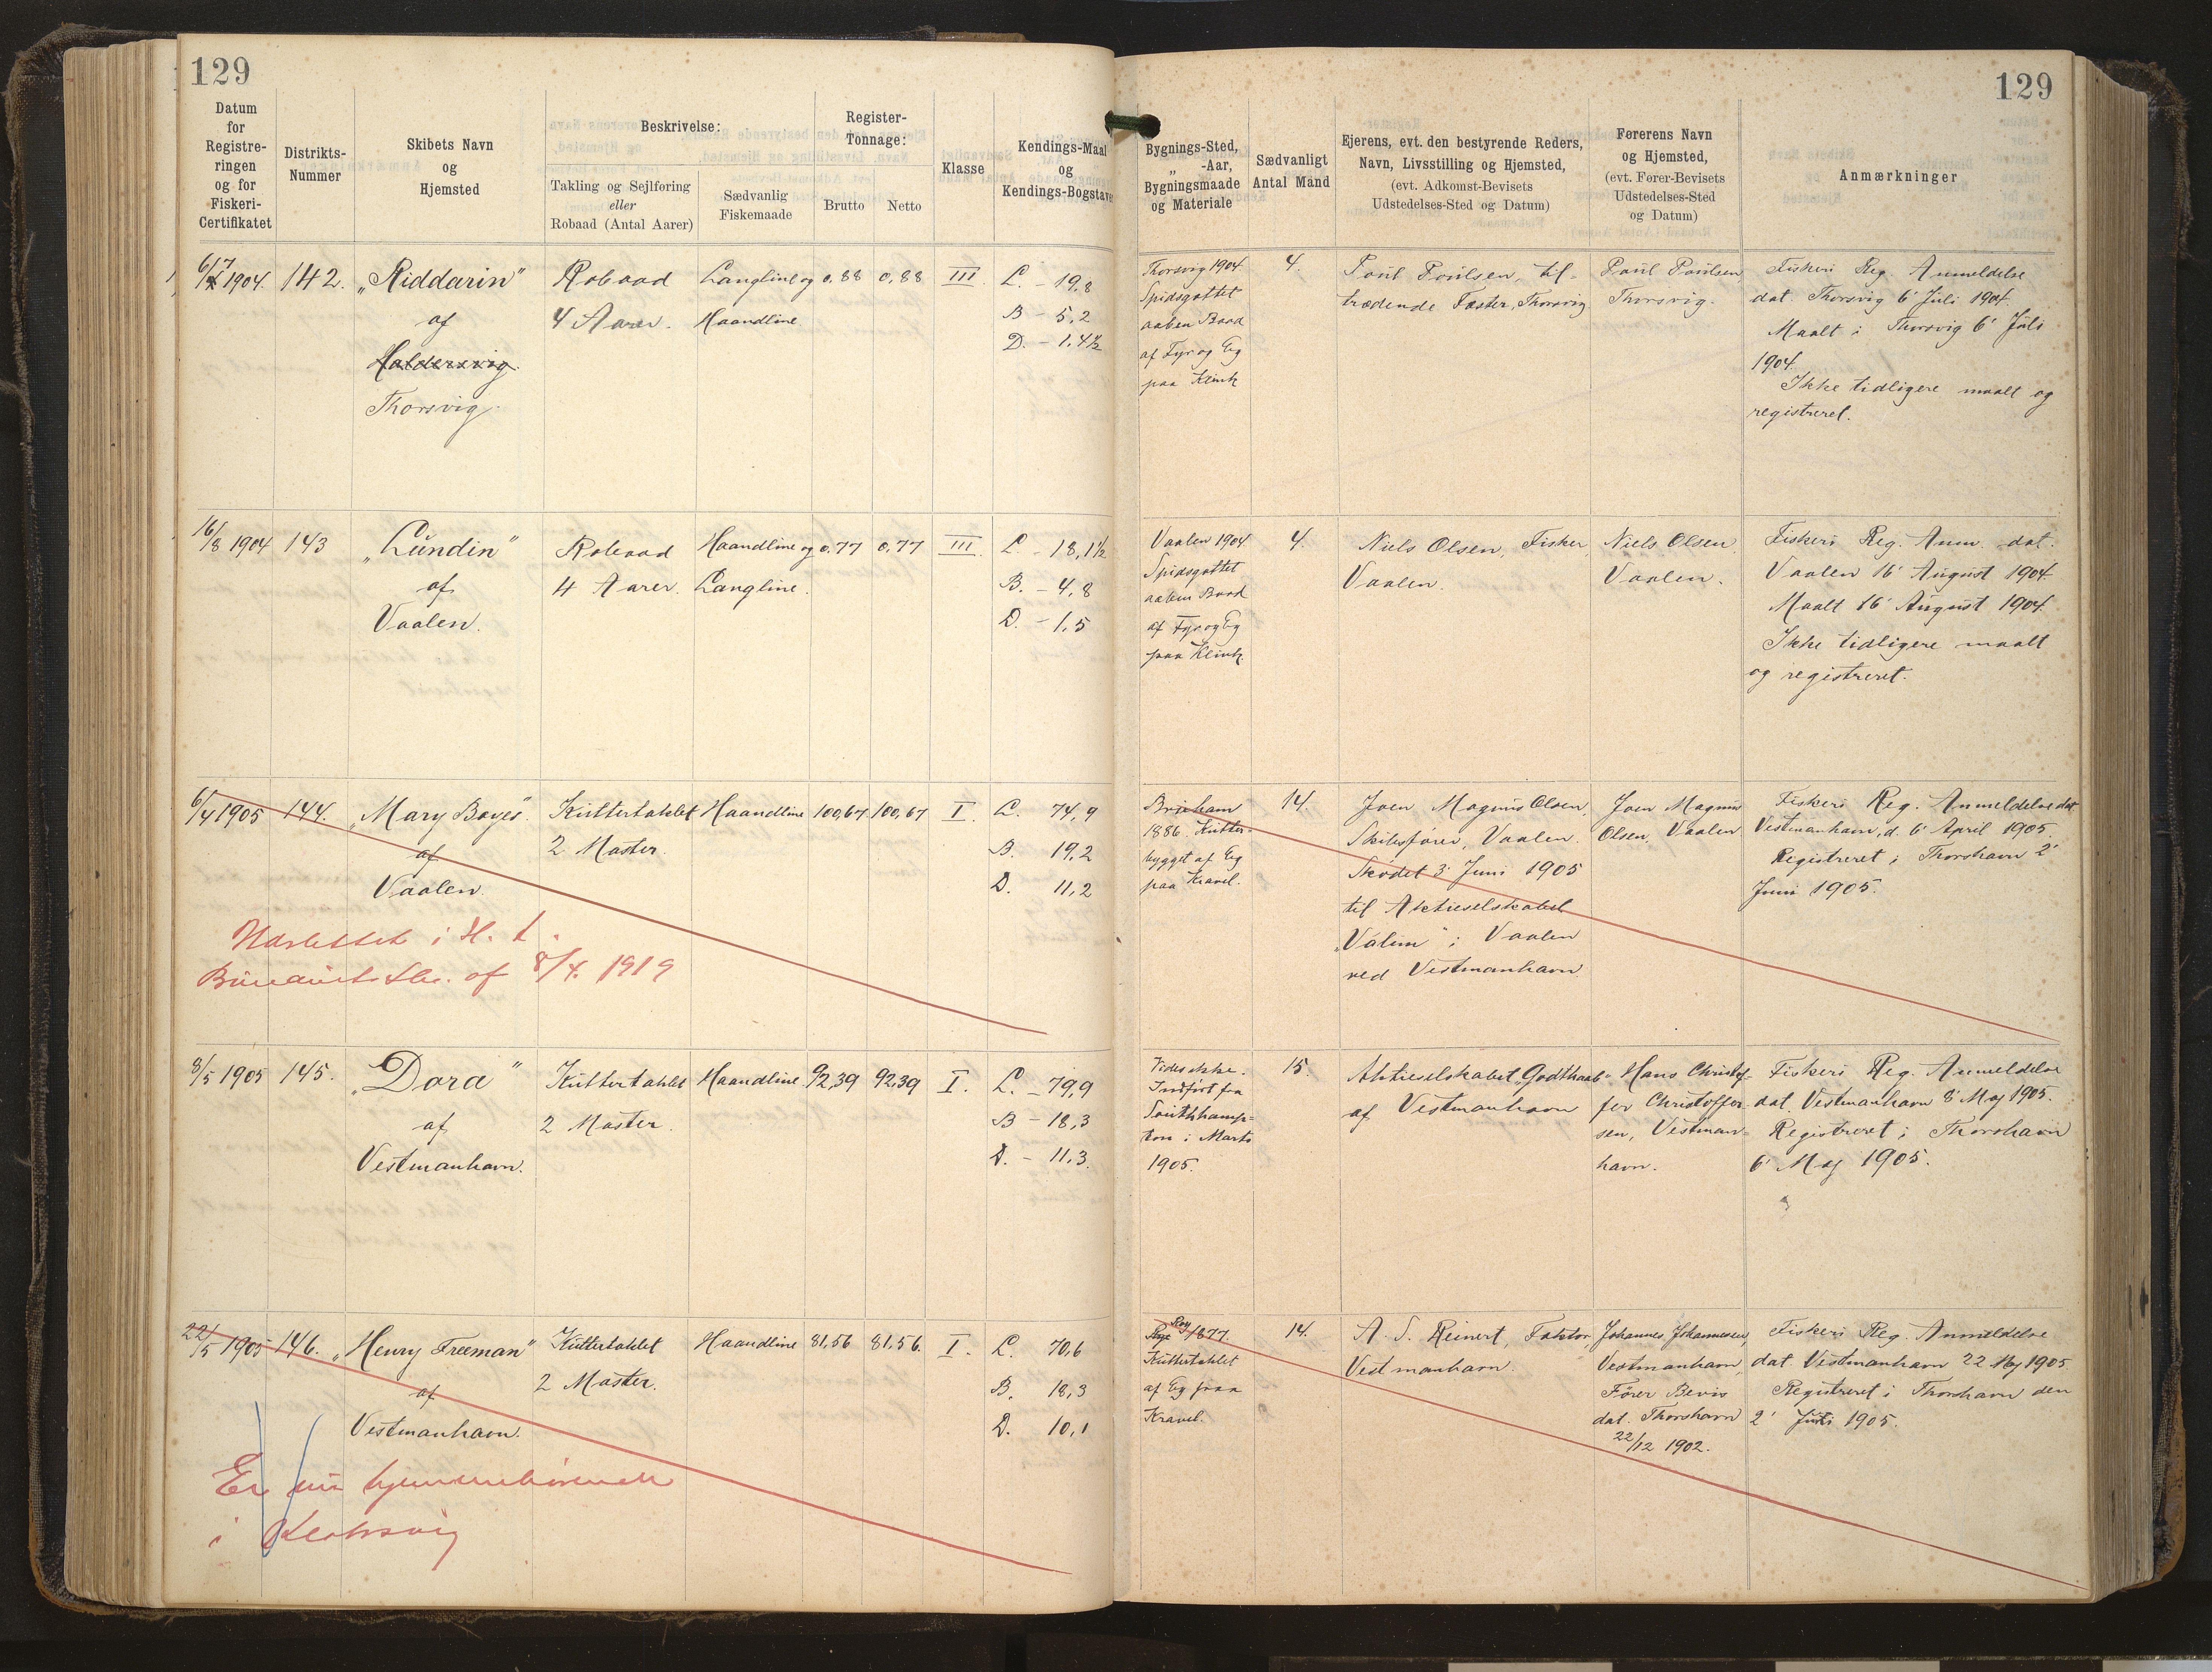 129
129
Datum
for
Registre-
ringen
og for
Fiskeri-
Certifikatet
Distrikts-
Nummer
Skibets Navn
og
Hjemsted
Beskrivelse:
Takling og Sejlføring
eller
Robaad (Antal Aarer)
Sædvanlig
Fiskemaade
Register-
Tonnage:
Brutto
Netto
Klasse
Kendings-Maal
og
Kendings-Bogstaver
Bygnings-Sted,
„ -Aar,
Bygningsmaade
og Materiale
Sædvanligt
Antal Mand
Ejerens, evt. den bestyrende Reders,
Navn, Livsstilling og Hjemsted,
(evt. Adkomst-Bevisets
Udstedelses-Sted og Datum)
Førerens Navn
og Hjemsted,
(evt. Fører-Bevisets
Udstedelses-Sted
og Datum)
Anmærkninger
6/7 1904
142.
„Riddarin"
af
Haldersvig.
Thorsvig.
Robaad
4 Aarer.
Langline og
Haandline
0,88
0,88
III
L. - 19,8
B - 5,2
D. - 1,4½
Thorsvig 1904
Spidsgattet
aaben Baad
af Fyr og Eg
paa Klink
4.
Poul Poulsen, til-
trædende Fæster, Thorsvig
Poul Poulsen,
Thorsvig.
Fiskeri Reg. Anmeldelse
dat. Thorsvig 6' Juli 1904.
Maalt i Thorsvig 6' Juli
1904.
Ikke tidligere maalt og
registreret.
16/8 1904
143
„Lundin"
af
Vaalen.
Robaad
4 Aarer.
Haandline og
Langline.
0,77
0,77
III.
L - 18,1½
B. - 4,8
D. - 1,5
Vaalen 1904
Spidsgattet
aaben Baad
af Fyr og Eg
paa Klink.
4.
Niels Olsen, Fisker,
Vaalen.
Niels Olsen
Vaalen.
Fiskeri Reg. Anm. dat.
Vaalen 16' August 1904
Maalt 16' August 1904.
Ikke tidligere maalt
og registreret.
6/4 1905
144.
„Mary Boyes"
af
Vaalen.
Kuttertaklet
2 Master.
Haandline
100,67
100,67
I.
L. 74,9
B. 19,2
D. 11,2
Brixham
1886. Kutter-
bygget af Eg
paa Kravel.
14.
Joen Magnus Olsen,
Skibsfører, Vaalen.
Skødet 3' Juni 1905
til Aktieselskabet
„Válin" i Vaalen
ved Vestmanhavn
Joen Magnus
Olsen, Vaalen
Fiskeri Reg. Anmeldelse dat
Vestmanhavn, d. 6' April 1905.
Registreret i Thorshavn 2'
Juni 1905.
Udslettet i H. t.
af 8/4. 1919
8/5 1905
145.
„Dora"
af
Vestmanhavn.
Kuttertaklet
2 Master.
Haandline
92,39
92,39
I.
L. - 79,9
B - 18,3
D. - 11,3.
Vides ikke.
Indført fra
Southhamp-
ton i Marts
1905.
15.
Aktieselskabet „Godthaab"
af Vestmanhavn
Hans Christof-
fer Christoffer-
sen, Vestman-
havn.
Fiskeri Reg. Anmeldelse
dat. Vestmanhavn 8' Maj 1905.
Registreret i Thorshavn
6' Maj 1905.
22/5 1905
146.
„Henry Freeman"
af
Vestmanhavn.
Kuttertaklet
2 Master.
Haandline
81,56
81,56.
I.
L. 70,6
B. 18,3
D. 10,1
1877.
Kuttertaklet
af Eg paa
Kravel.
14.
A. S. Reinert, Faktor,
Vestmanhavn.
Johannes Johannesen,
Vestmanhavn,
Fører Bevis
dat. Thorshavn
22/12 1902.
Fiskeri Reg. Anmeldelse
dat. Vestmanhavn 22 Maj 1905.
Registreret i Thorshavn den
2' Juni 1905.
Er nu hjemmehørende
i Klaksvig